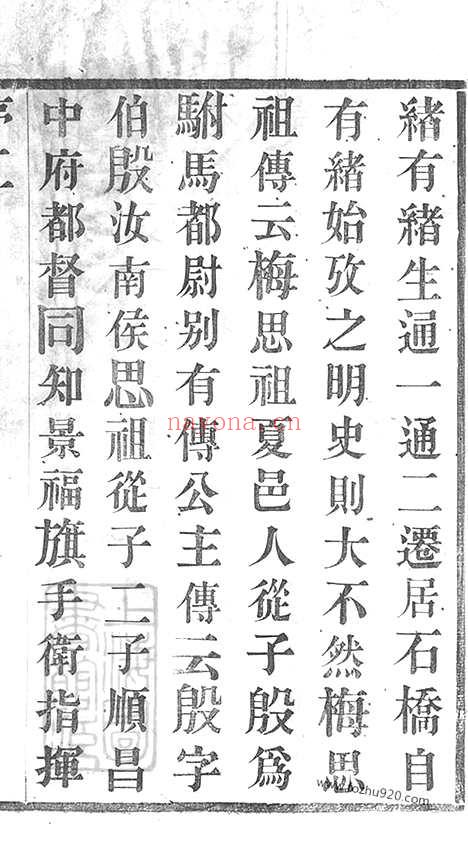 緒有緒生通一通二遷居石橋自
有緒始攷之明史則大不然梅思
祖傳云梅思祖夏邑人從子殷為
駙馬都尉别有傳公主傳云殷字
伯殷汝南侯思祖從子二子順昌
中府都督同知景福旗手衛指揮
nayona.cn
www.bozhu920.com